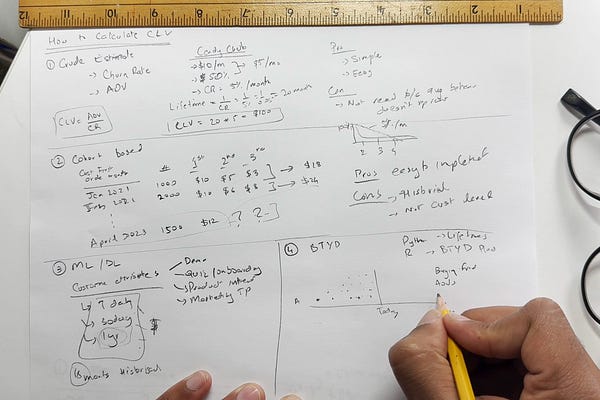 How to Calculate CLV
① Crude Estimate
→ Churn Rate
→ AOV
CLV = AOV / CR
Candy Club
→ $10/m
→ $ 50%
→ $5/mo
→ CR = 5% / month
Lifetime = 1/CR = 1/5% = 20 month
CLV = 20 * 5 = $100
Pro
→ Simple
→ Easy
Con
→ Not real b/c avg
doesn't
/m
2 3 4
② Cohort based
Cust First # 1st 2nd 3rd
order month
Jan 2021 1000 $10 $5 $3 → $18
2021 2000 $10 $6 $8 → $24
April 2023 1500 $12 ? ?
Pros easy to implement
Cons → Historical
→ not cust level
③ ML/DL
Customer attributes
Demo
Quiz/onboarding
Product interest
Marketing TP
7 day
30 day
1 yr
$
18 months Historical
④ BTYD
Python → Lifetimes
R → BTYD
A
Today